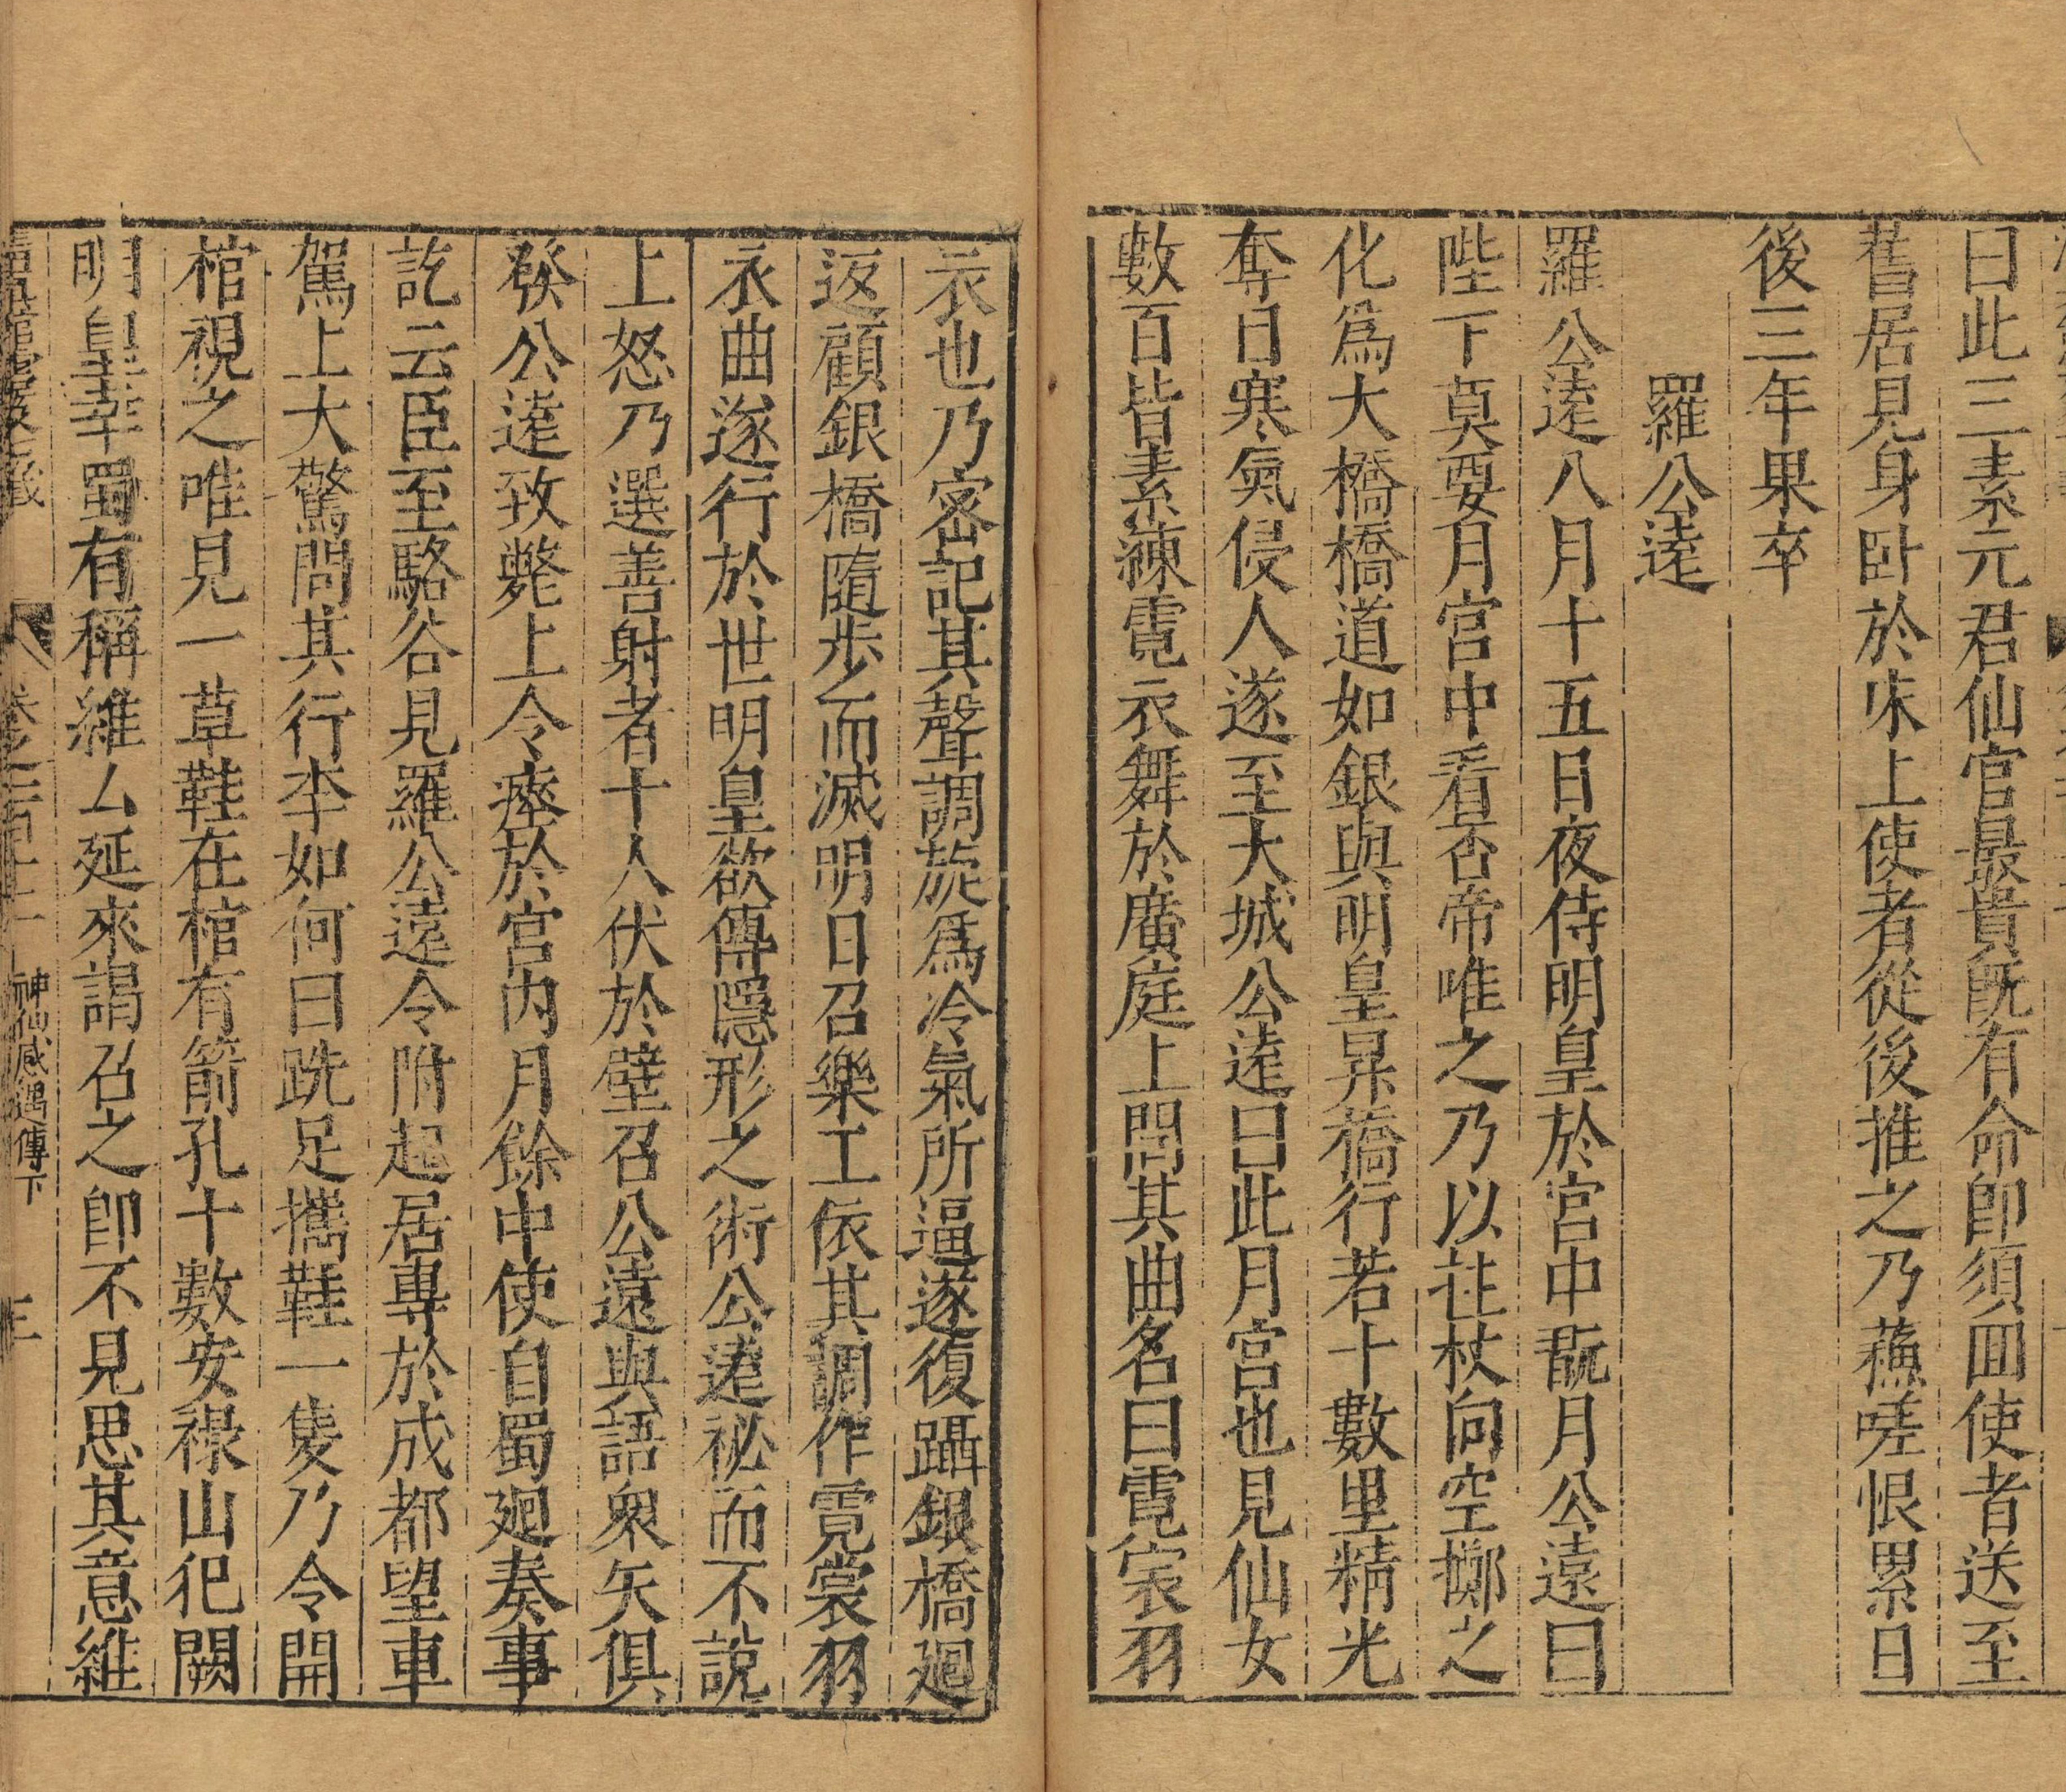 曰此三素元君仙官最貴既有命卽須囬使者送至
舊居見身卧於床上使者從後推之乃蘓嗟恨累日
後三年果卒
羅公遠
羅公遠八月十五日夜侍明皇於宫中翫月公遠曰
陛下莫要月宫中看否帝唯之乃以拄杖向空擲之
化爲大橋橋道如銀與明皇昇橋行若十數里精光
奪目寒氣侵人遂至大城公遠曰此月宫也見仙女
數百皆素練霓衣舞於廣庭上問其曲名曰霓裳羽
衣也乃密記其聲調旋爲冷氣所逼遂復躡銀橋廻
返顧銀橋隨步而滅明日召樂工依其調作霓裳羽
衣曲遂行於世明皇欲傳隱形之術公遠祕而不說
上怒乃選善射者十人伏於壁召公遠與語衆矢俱
發公遠致斃上令瘞於宫内月餘中使自蜀廻奏事
訖云臣至駱谷見羅公遠令附起居專於成都望車
駕上大驚問其行李如何曰跣足攜鞋一隻乃令開
棺視之唯見一草鞋在棺有箭孔十數安禄山犯闕
明皇幸蜀有稱維厶延來謁召之卽不見思其意維
神仙感遇傳下
三